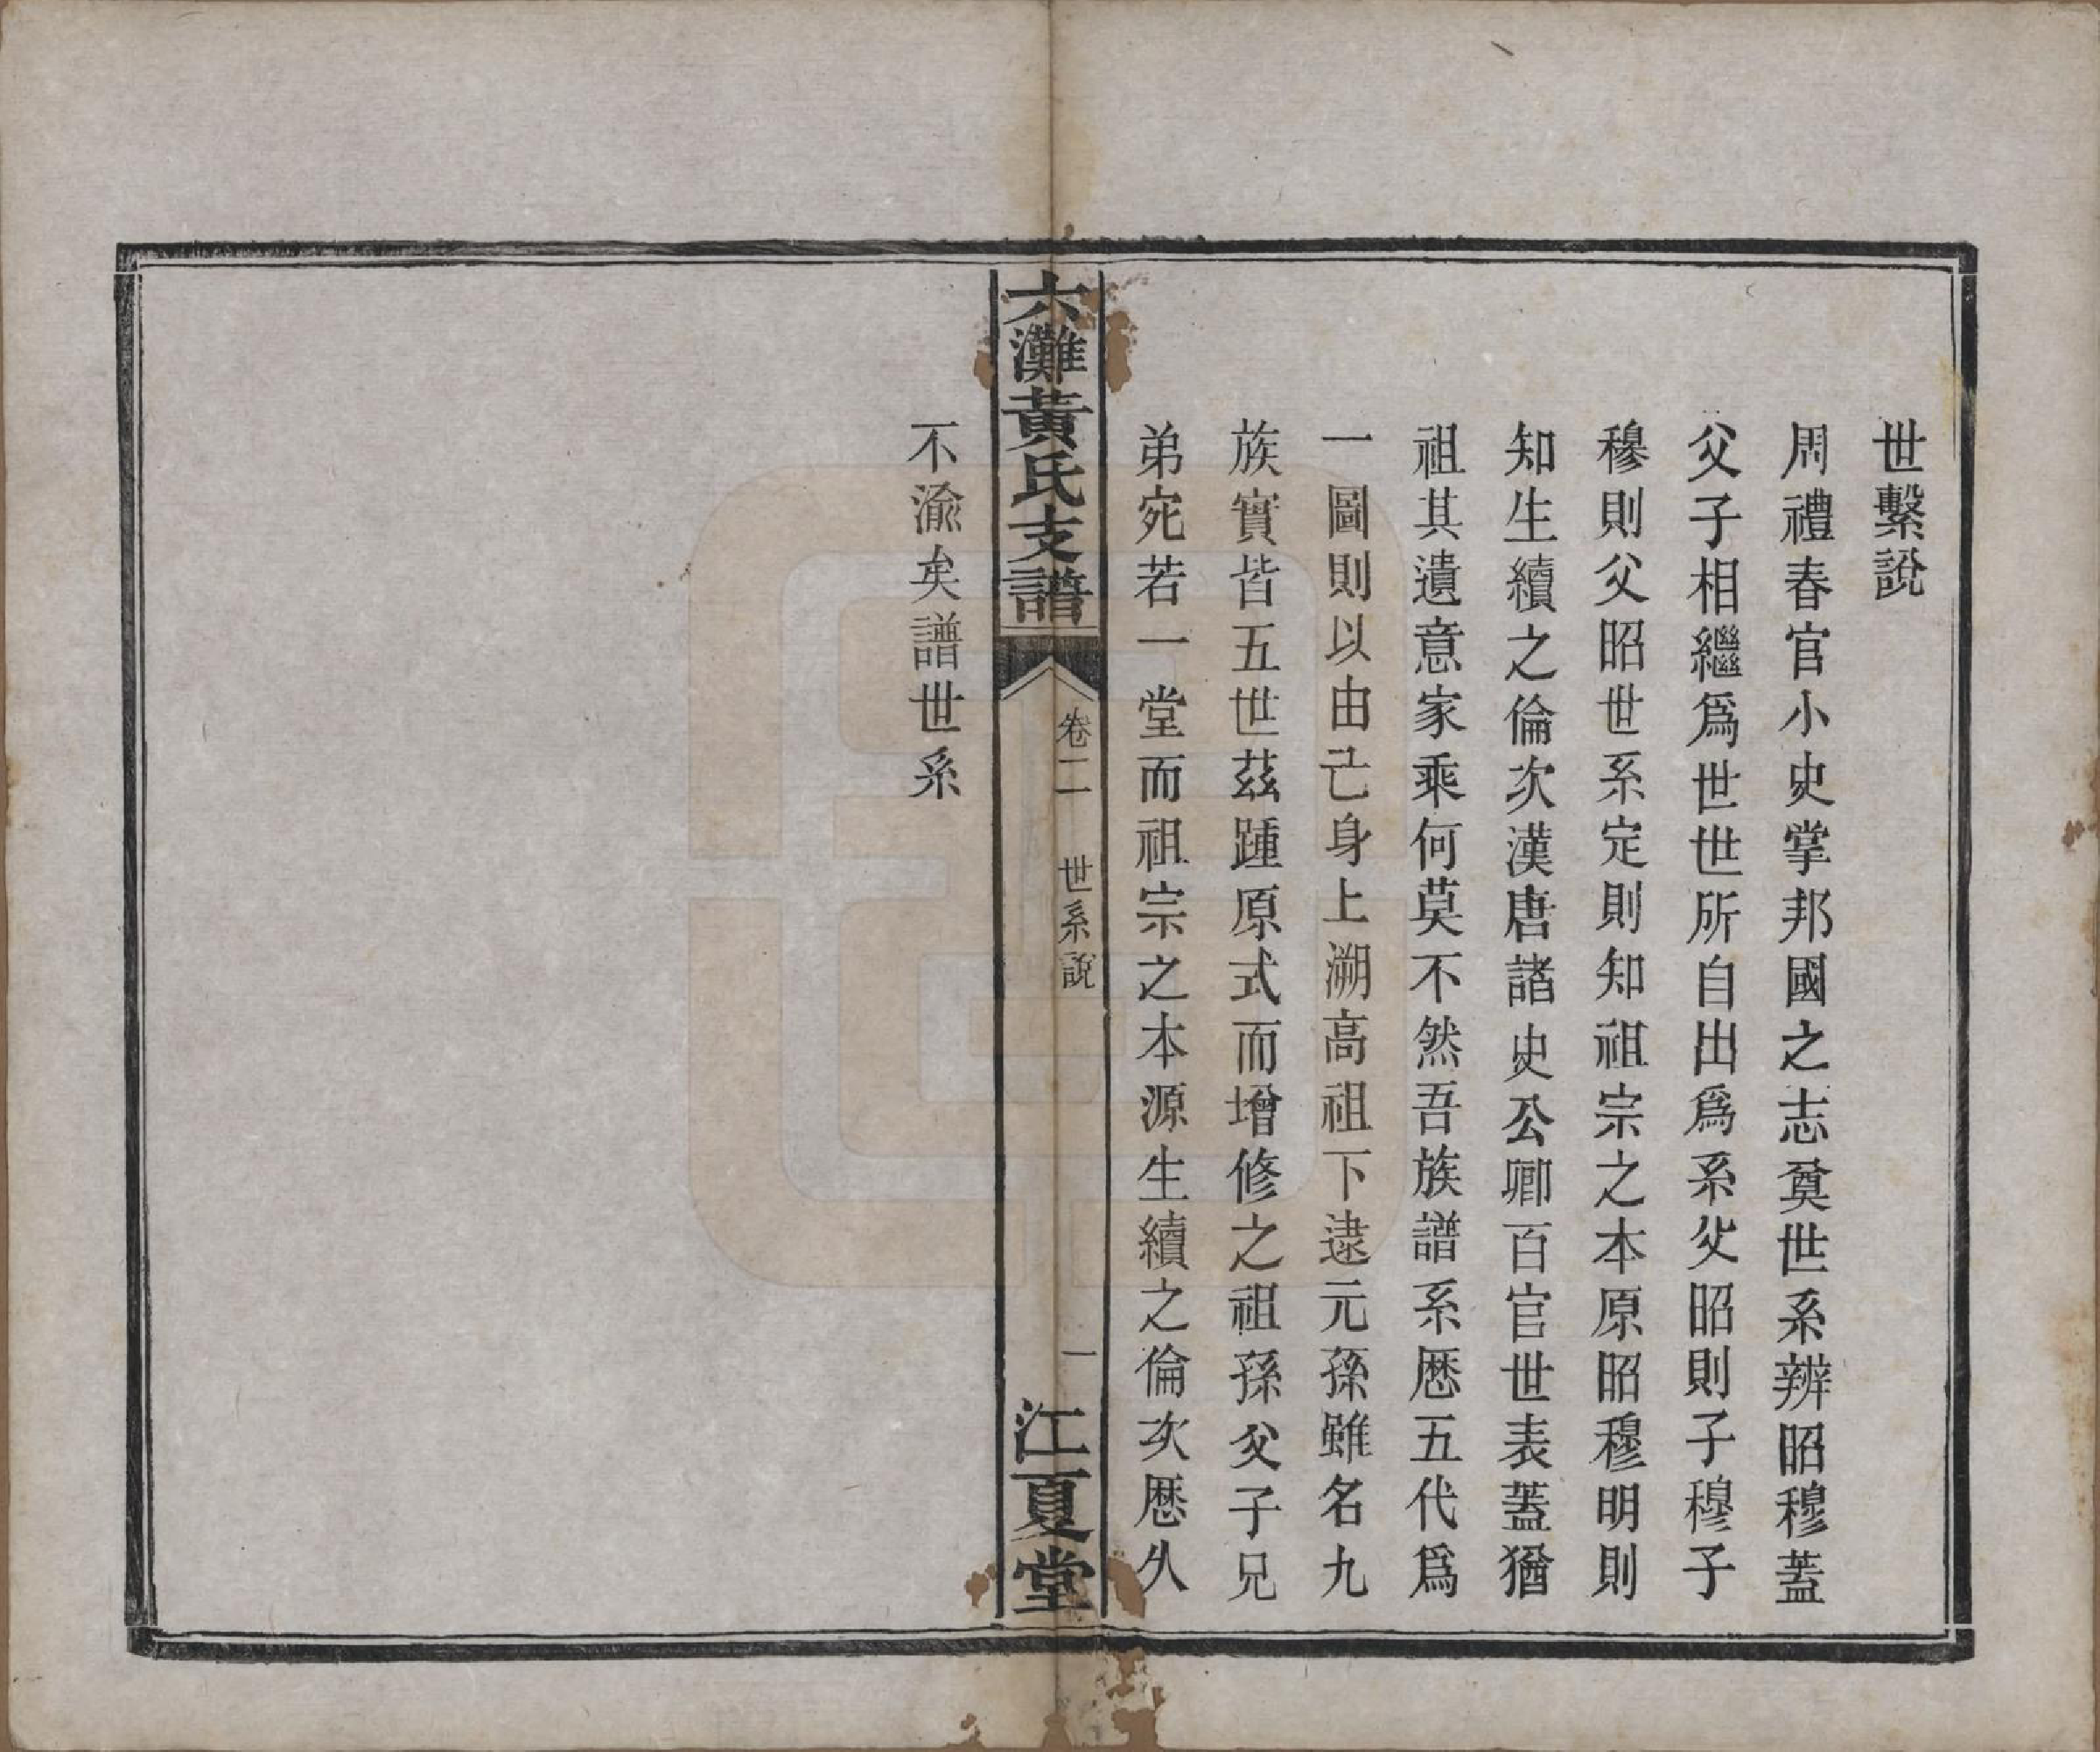 世繫說
周禮春官小史掌邦國之志奠世系辨昭穆蓋
父子相繼爲世世所自出爲系父昭則子穆子
穆則父昭世系定則知祖宗之本原昭穆明則
知生續之倫次漢唐諸史公卿百官世表蓋猶
祖其遺意家乘何莫不然吾族譜系歷五代爲
一圖則以由己身上溯高祖下逮元孫雖名九
族實皆五世茲踵原式而增修之祖孫父子兄
弟宛若一堂而祖宗之本源生續之倫次歷久
六灘黃氏支譜
卷二 世系說
一
江夏堂
不渝矣譜世系